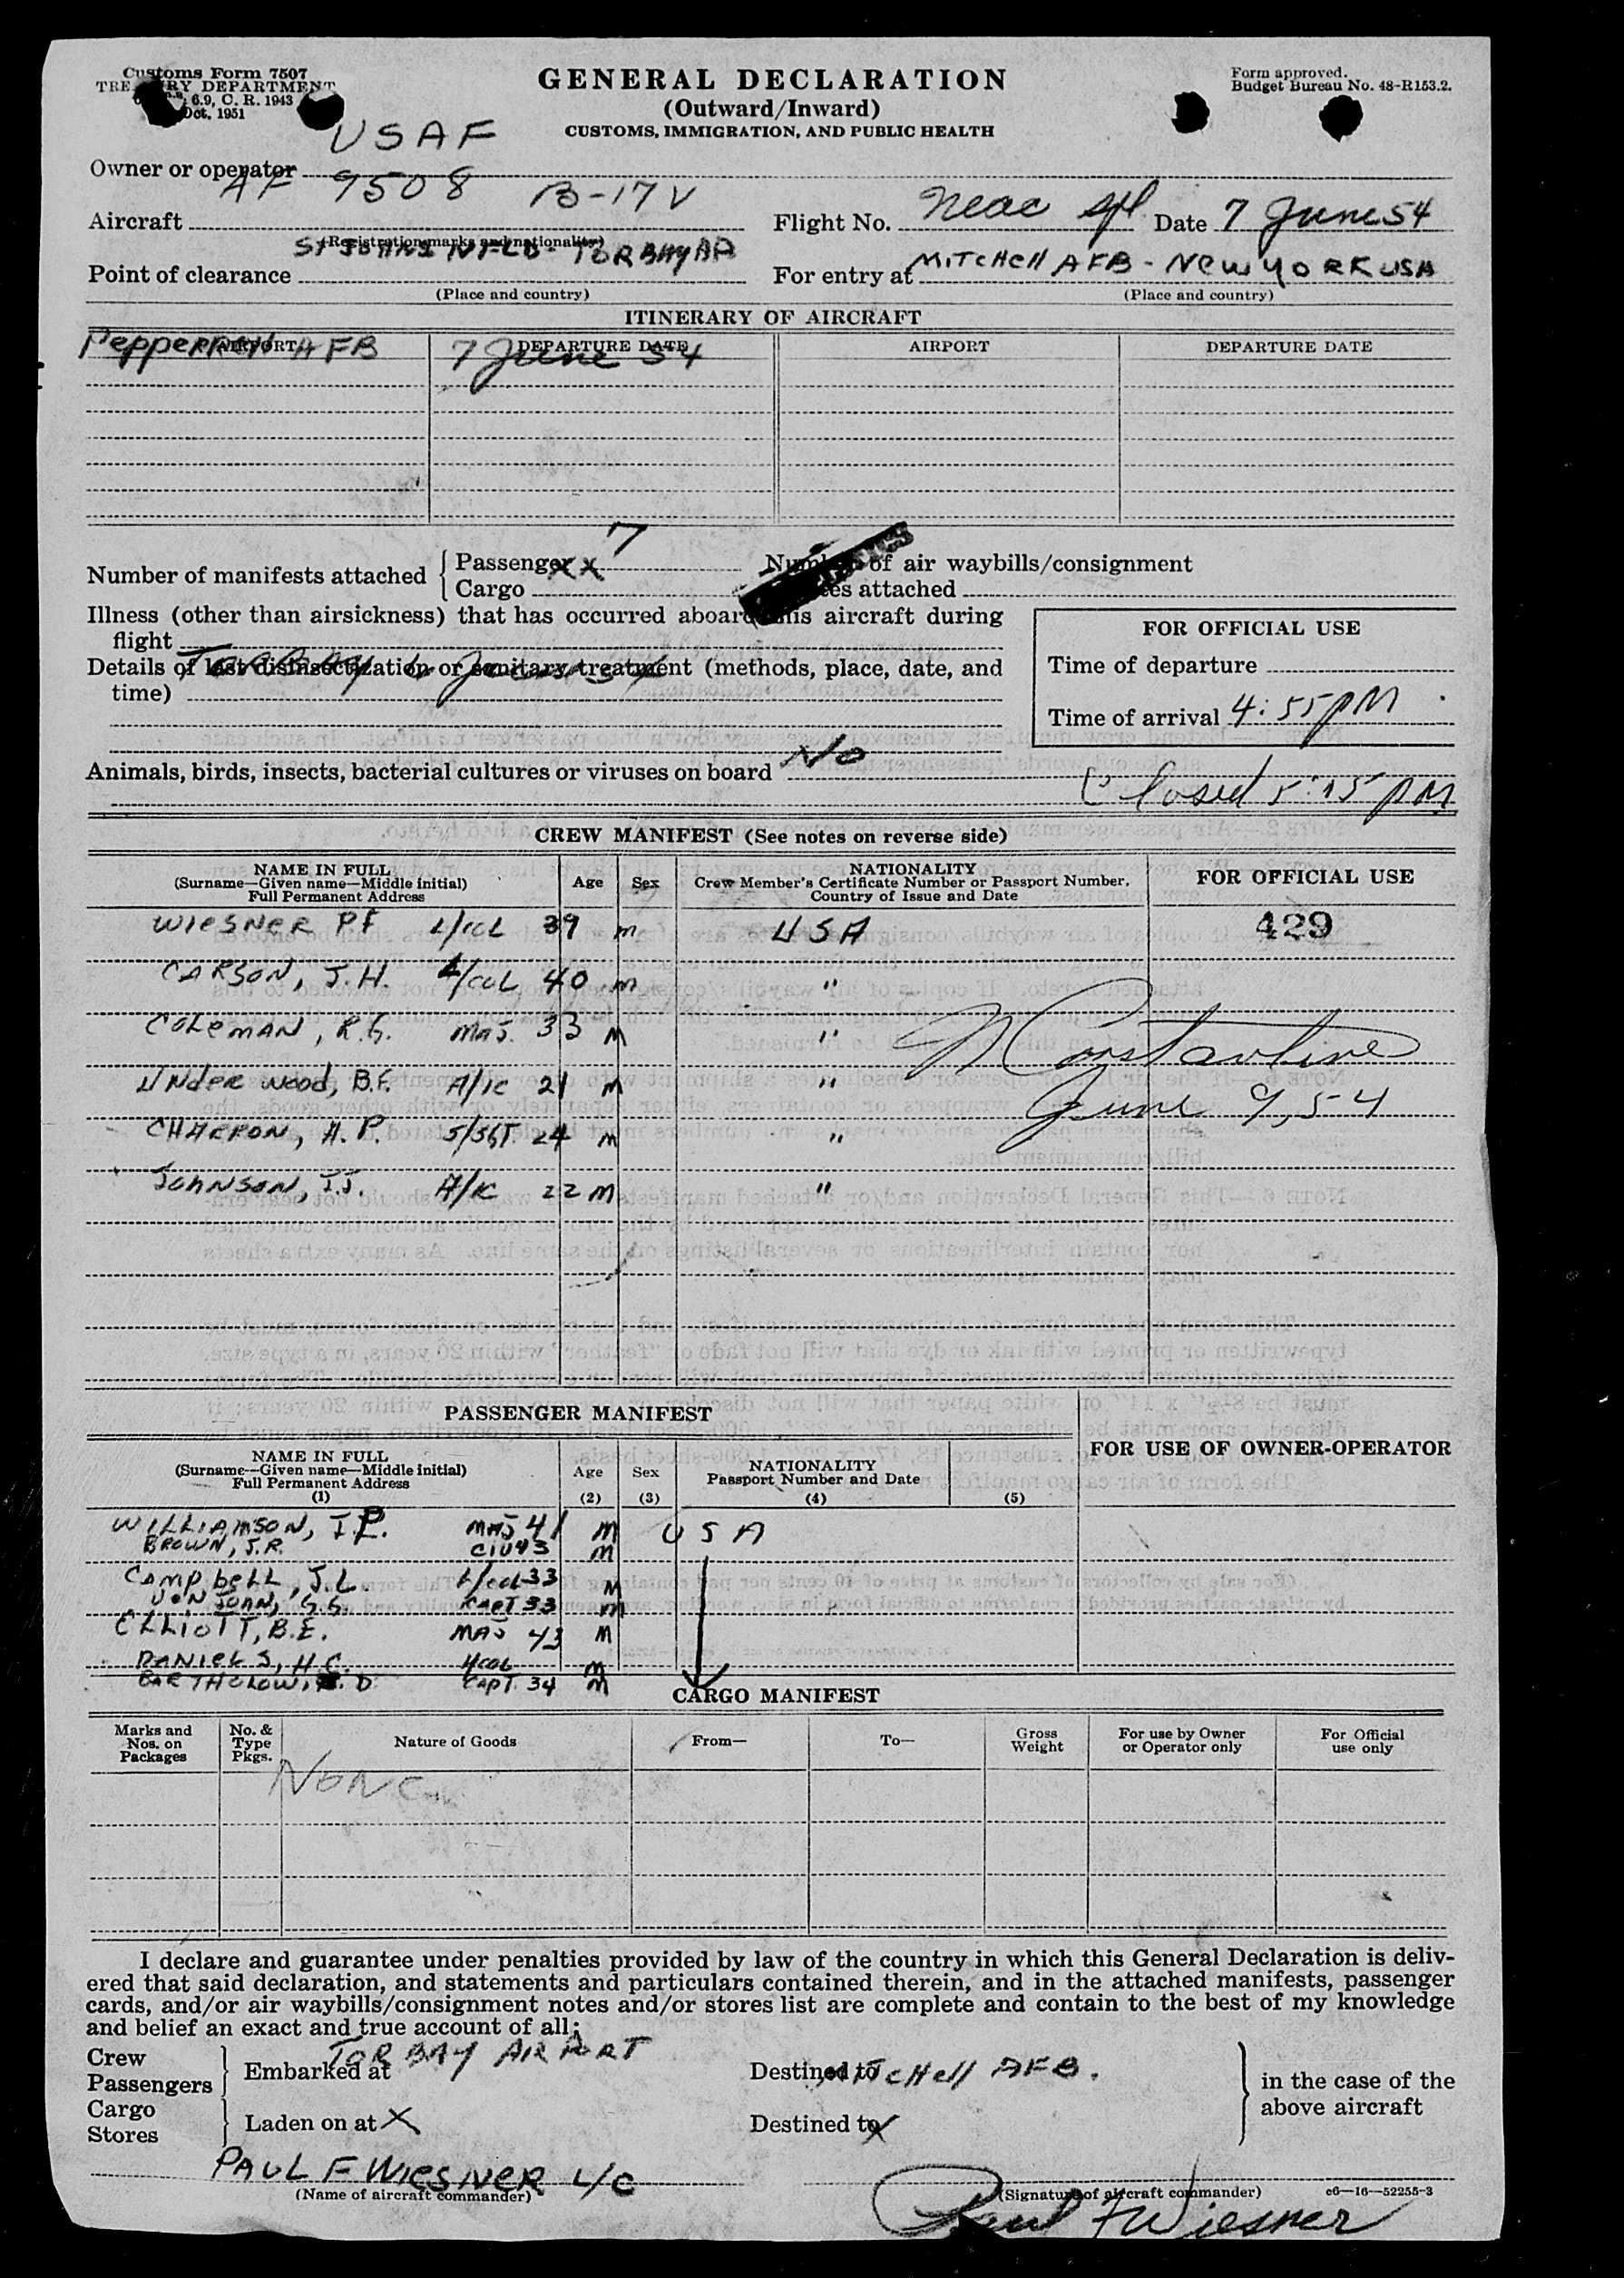 Customs Form 7507
TREASURY DEPARTMENT
6.9, C. R. 1943
Oct. 1951
GENERAL DECLARATION
(Outward/Inward)
CUSTOMS, IMMIGRATION, AND PUBLIC HEALTH
Form approved.
Budget Bureau No. 48-R153.2.
Owner or operator USAF
Aircraft AF 9508 B-17 V
(Registration marks and nationality)
Flight No. Neac Date 7 June 54
Point of clearance St JOHNS NFLD - TORBAY AP
(Place and country)
For entry at MITCHELL AFB - NEW YORK USA
(Place and country)
ITINERARY OF AIRCRAFT
AIRPORT DEPARTURE DATE AIRPORT DEPARTURE DATE
Pepperrell AFB 7 June 54
Number of manifests attached
Passenger xx 7
Cargo
Number of air waybills/consignment
notes attached
Illness (other than airsickness) that has occurred aboard this aircraft during
flight
Details of last disinsectization or sanitary treatment (methods, place, date, and
time)
FOR OFFICIAL USE
Time of departure
Time of arrival 4:55 PM
Animals, birds, insects, bacterial cultures or viruses on board No
Closed 5:15 PM
CREW MANIFEST (See notes on reverse side)
NAME IN FULL
(Surname—Given name—Middle initial)
Full Permanent Address
Age
Sex
NATIONALITY
Crew Member's Certificate Number or Passport Number,
Country of Issue and Date
FOR OFFICIAL USE
WIESNER P F L/COL 39 M USA 429
CARSON, J. H. L/COL 40 M "
COLEMAN, R.G. MAJ. 33 M "
UNDERWOOD, B.F. A/1C 21 M "
CHARRON, A. P. S/SGT. 24 M "
JOHNSON, I.J. A/1C 22 M "
June 9, 54
PASSENGER MANIFEST
FOR USE OF OWNER-OPERATOR
NAME IN FULL
(Surname—Given name—Middle initial)
Full Permanent Address
(1)
Age
(2)
Sex
(3)
NATIONALITY
Passport Number and Date
(4)
(5)
WILLIAMSON, I.P. MAJ 41 M USA
BROWN, J.R. CIV 43 M
CAMPBELL, J.L. L/COL 33 M
VON JOHN, G.G. CAPT 33 M
ELLIOTT, B.E. MAJ 43 M
DANIELS, H.C. L/COL M
BARTHOLOW, D CAPT. 34 M
CARGO MANIFEST
Marks and
Nos. on
Packages
No. &
Type
Pkgs.
Nature of Goods
From—
To—
Gross
Weight
For use by Owner
or Operator only
For Official
use only
NONE
I declare and guarantee under penalties provided by law of the country in which this General Declaration is deliv-
ered that said declaration, and statements and particulars contained therein, and in the attached manifests, passenger
cards, and/or air waybills/consignment notes and/or stores list are complete and contain to the best of my knowledge
and belief an exact and true account of all:
Crew
Passengers
Embarked at TORBAY AIRPORT
Destined to MITCHELL AFB.
Cargo
Stores
Laden on at X
Destined to X
in the case of the
above aircraft
PAUL F WIESNER L/C
(Name of aircraft commander)
(Signature of aircraft commander)
c6—16—52255-3
Paul F Wiesner